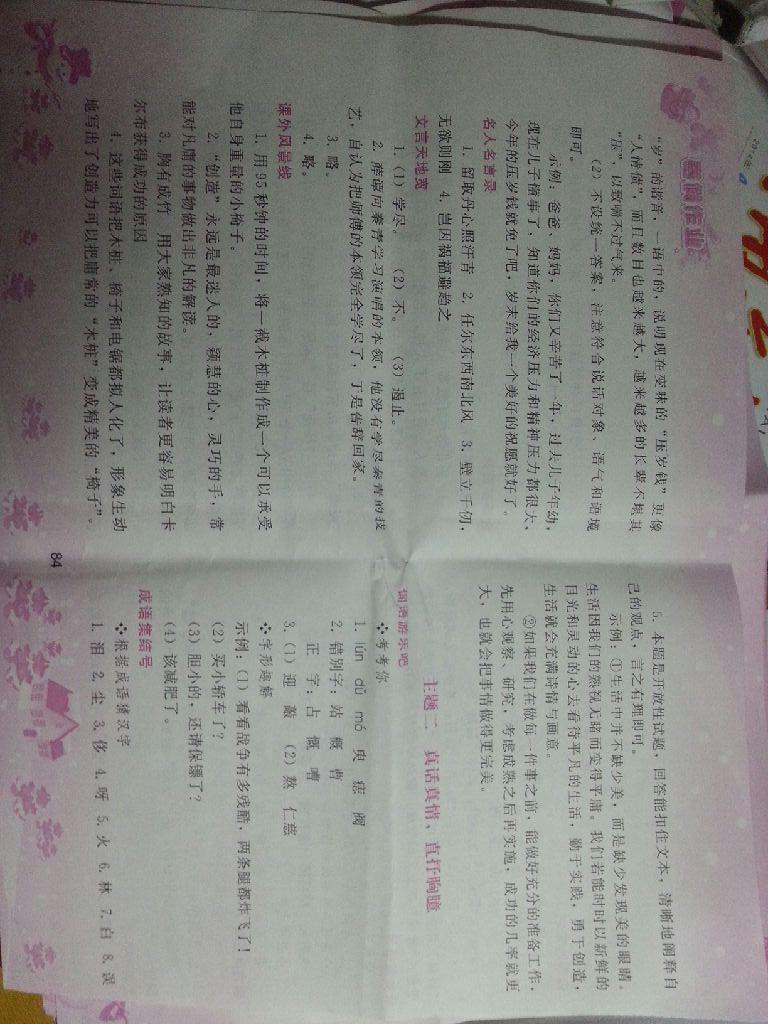 寒假作业
“岁”的谐音，一语中的，说明现在变味的“压岁钱”更像
“人情债”，而且数目也越来越大，越来越多的长辈不堪其
“压”，以致喘不过气来。
（2）不设统一答案，注意符合说话对象、语气和语境
即可。
示例：爸爸、妈妈，你们又辛苦了一年，过去儿子年幼，
现在儿子懂事了，知道你们的经济压力和精神压力都很大，
今年的压岁钱就免了吧，岁末给我一个美好的祝愿就好了。
名人名言录
1. 留取丹心照汗青 2. 任尔东西南北风 3. 壁立千仞，
无欲则刚 4. 岂因祸福避趋之
文言天地宽
1.（1）学尽。（2）不。（3）遏止。
2. 薛谭向秦青学习演唱的本领，他没有学尽秦青的技
艺，自认为把师傅的本领完全学尽了，于是告辞回家。
3. 略。
4. 略。
课外风景线
1. 用95秒钟的时间，将一截木桩制作成一个可以承受
他自身重量的小椅子。
2. “创造”永远是最迷人的，颖慧的心，灵巧的手，常
能对凡庸的事物做出非凡的解读。
3. 胸有成竹 用大家熟知的故事，让读者更容易明白卡
尔布获得成功的原因
4. 这些词语把木桩、椅子和电锯都拟人化了，形象生动
地写出了创造力可以把庸常的“木桩”变成精美的“椅子”。
84
5. 本题是开放性试题，回答能扣住文本，清晰地阐释自
己的观点，言之有理即可。
示例：①生活中并不缺少美，而是缺少发现美的眼睛。
生活因我们的熟视无睹而变得平庸。我们若能时时以新鲜的
目光和灵动的心去看待平凡的生活，勤于实践，勇于创造，
生活就会充满诗情与画意。
②如果我们在做每一件事之前，能做好充分的准备工作，
先用心观察、研究，考虑成熟之后再实施，成功的几率就更
大，也就会把事情做得更完美。
主题二 真话真情，直抒胸臆
词语游乐吧
❖考考你
1. lún dǔ mó 臾 痣 阀
2. 错别字：站 概 曹
正 字：占 慨 嘈
3.（1）迎 敵 （2）熬 仁慈
❖字形趣解
示例：（1）看看战争有多残酷，两条腿都炸飞了！
（2）买小轿车了？
（3）胆小的，还请保镖了？
（4）该减肥了。
成语集结号
❖根据成语猜汉字
1. 泪 2. 尘 3. 侈 4. 呀 5. 火 6. 林 7. 白 8. 误